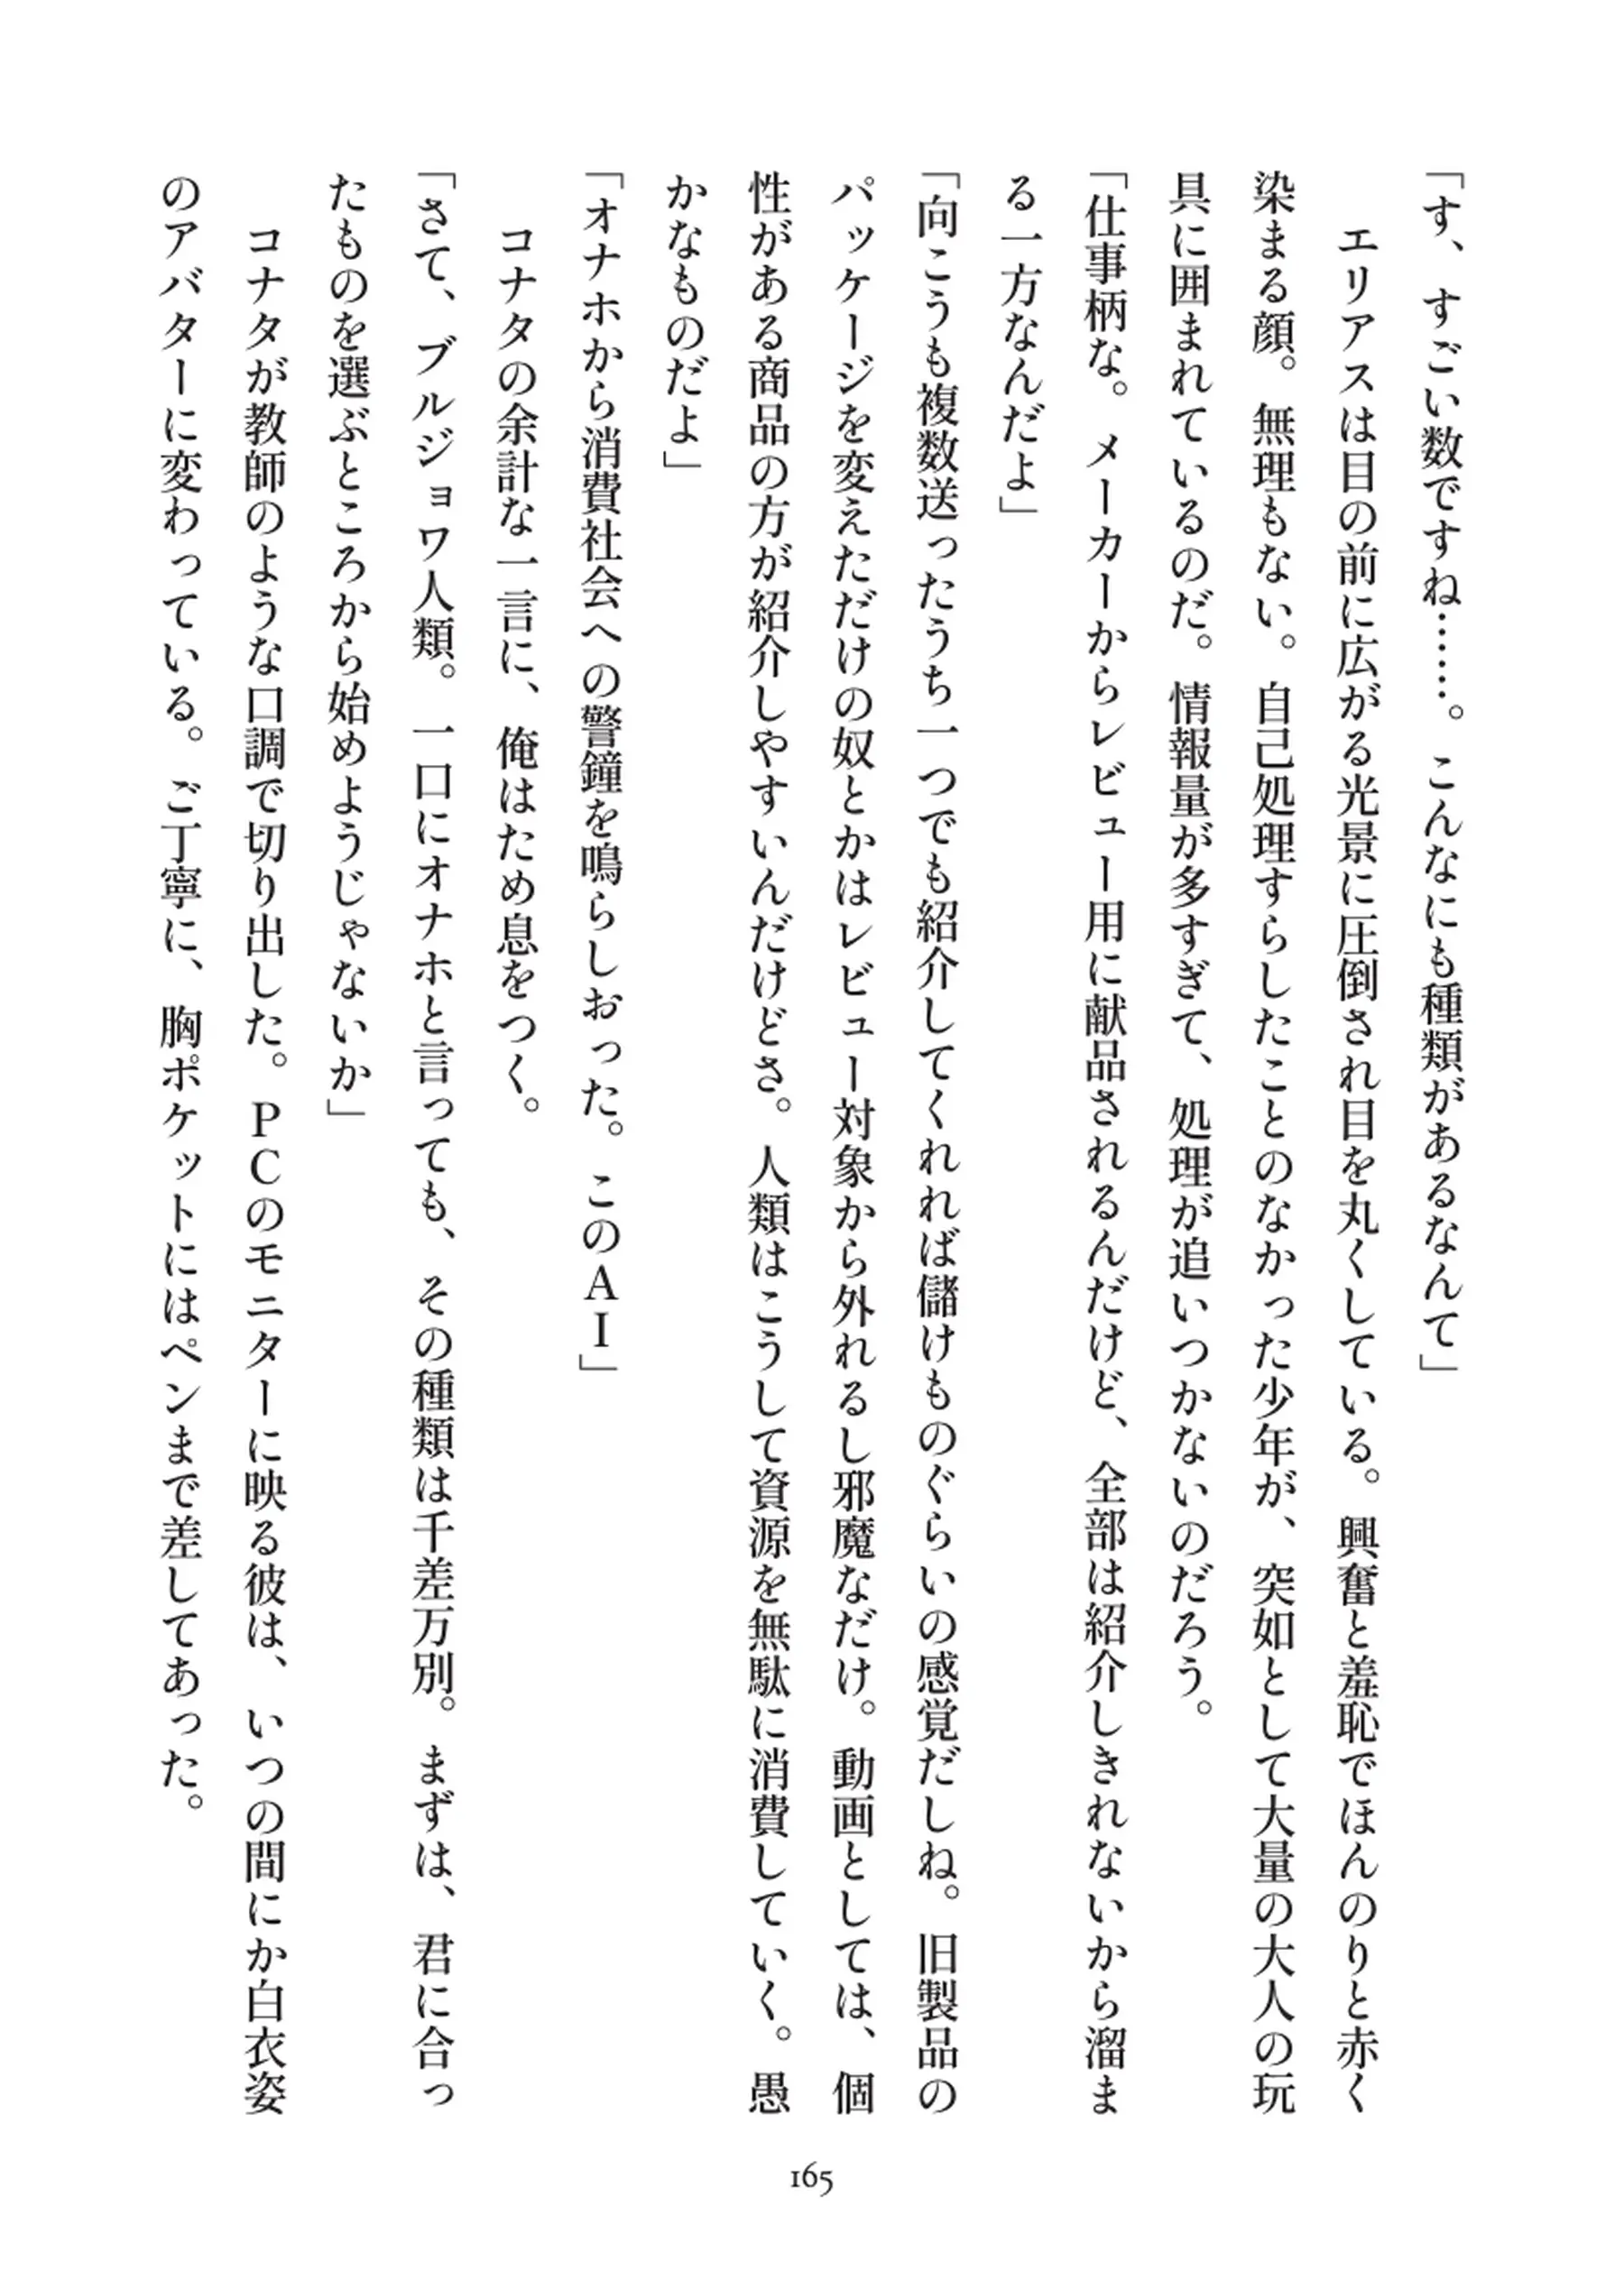 「す、すごい数ですね……。こんなにも種類があるなんて」
エリアスは目の前に広がる光景に圧倒され目を丸くしている。興奮と羞恥でほんのりと赤く
染まる顔。無理もない。自己処理すらしたことのなかった少年が、突如として大量の大人の玩
具に囲まれているのだ。情報量が多すぎて、処理が追いつかないのだろう。
「仕事柄な。メーカーからレビュー用に献品されるんだけど、全部は紹介しきれないから溜ま
る一方なんだよ」
「向こうも複数送ったうち一つでも紹介してくれれば儲けものぐらいの感覚だしね。旧製品の
パッケージを変えただけの奴とかはレビュー対象から外れるし邪魔なだけ。動画としては、個
性がある商品の方が紹介しやすいんだけどさ。人類はこうして資源を無駄に消費していく。愚
かなものだよ」
「オナホから消費社会への警鐘を鳴らしおった。このAI」
コナタの余計な一言に、俺はため息をつく。
「さて、ブルジョワ人類。一口にオナホと言っても、その種類は千差万別。まずは、君に合っ
たものを選ぶところから始めようじゃないか」
コナタが教師のような口調で切り出した。PCのモニターに映る彼は、いつの間にか白衣姿
のアバターに変わっている。ご丁寧に、胸ポケットにはペンまで差してあった。
165